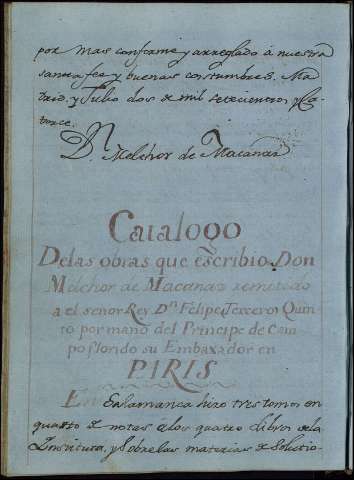 por mas conforme y arreglado á nuestra
santa fee y buenas costumbres. Ma-
drid, y Julio dos de mil setecientos y Ca-
torce.
Dn. Melchor de Macanaz
Catalogo
Delas obras que escribio Don
Melchor de Macanaz remetido
a el señor Rey Dn Felipe Tercero Quin
to por mano del Principe de Cam
poflorido su Embaxador en
PIRIS
En Salamanca hizo tres tomos en
quarto de notas alos quatro libros dela
Institura, y Sobrelas materias de Solutio-